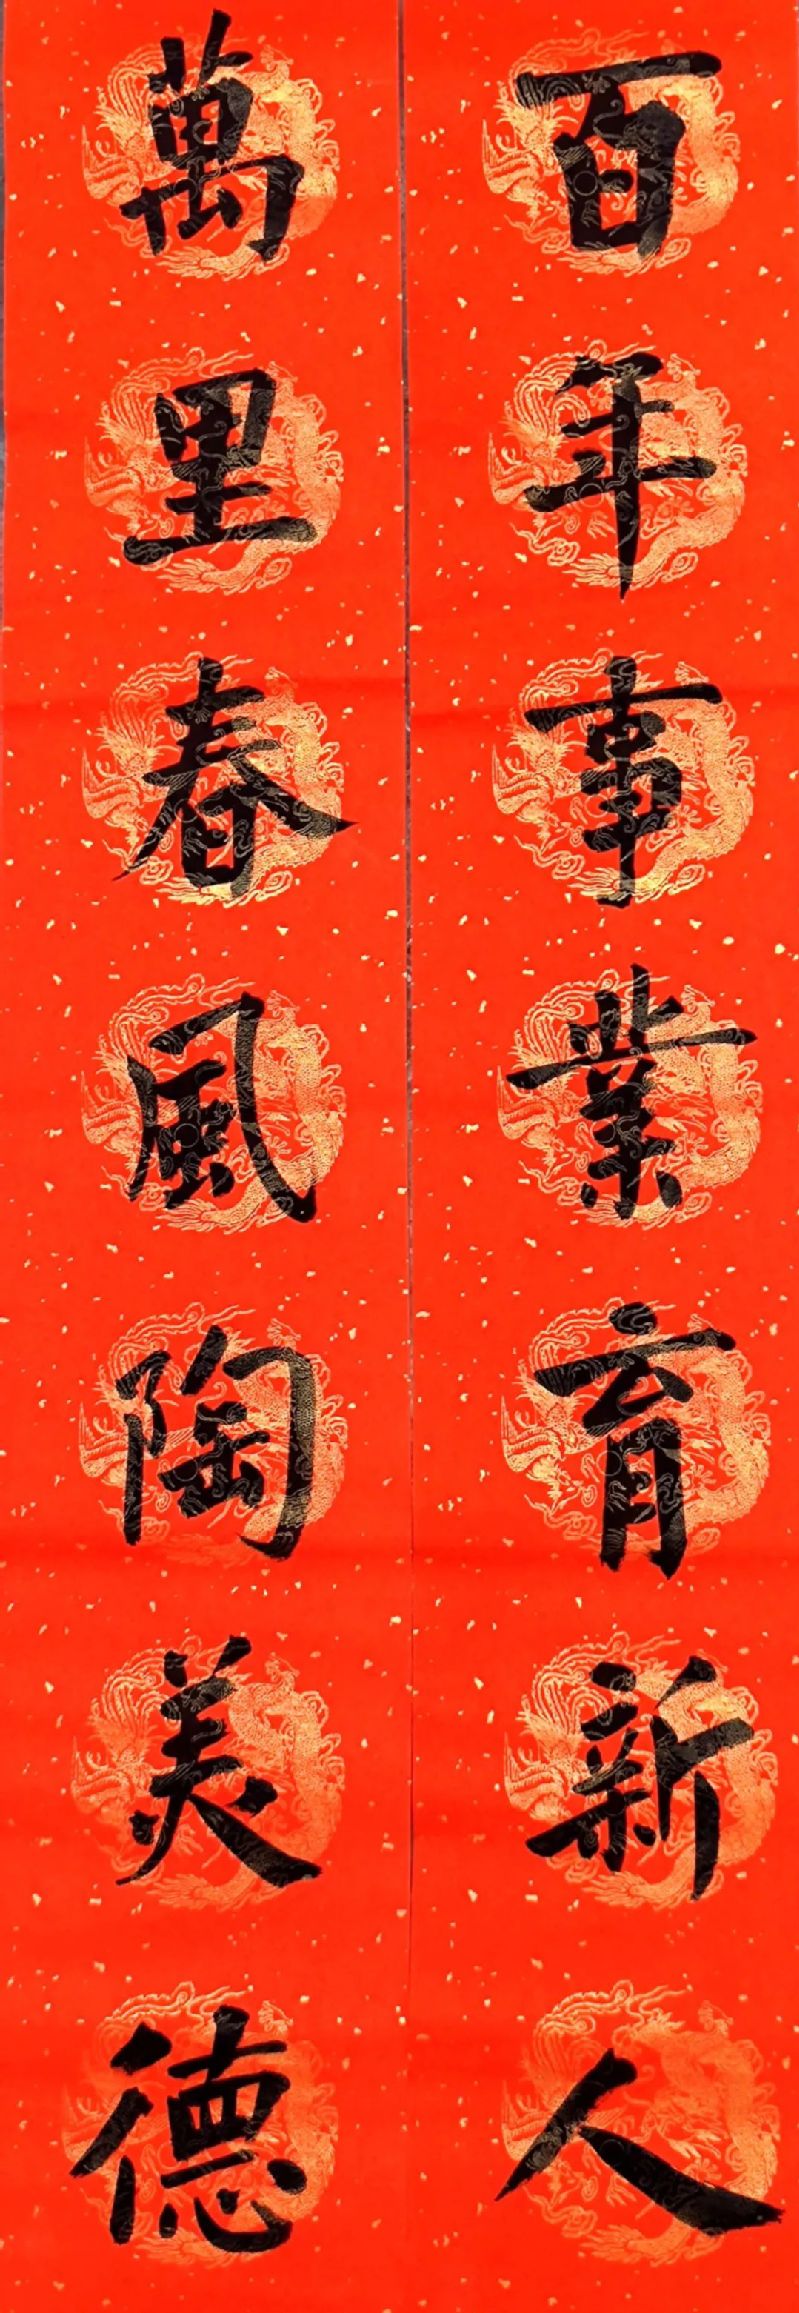 百年事業育新人
萬里春風陶美德